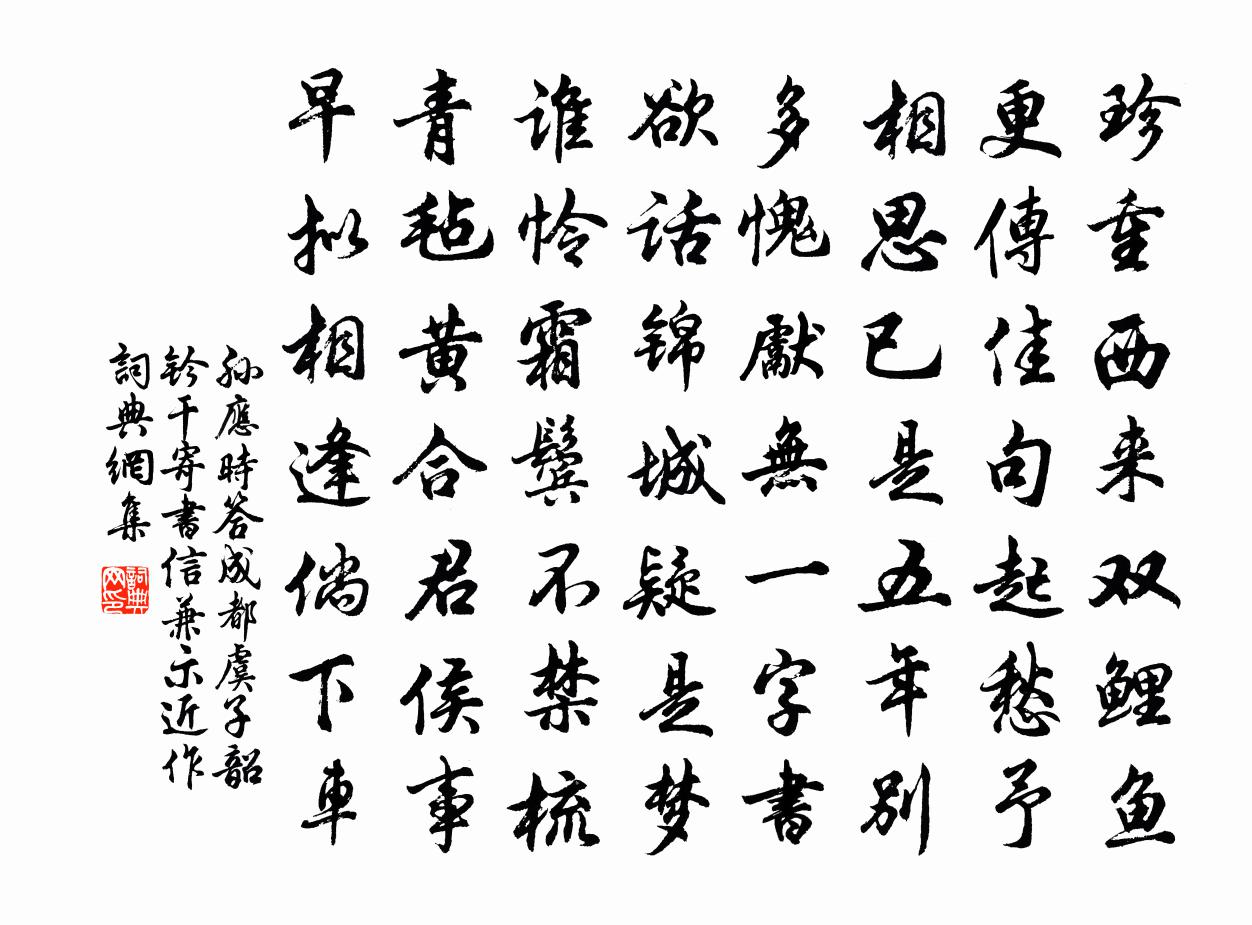 珍重西来双鲤鱼
更傳佳句起愁予
相思已是五年别
多愧獻無一字書
欲话锦城疑是梦
谁怜霜鬓不禁梳
青毡黄合君侯事
早拟相逢倘下車
孙應時答成都虞子韶
鈐干寄書信兼示近作
詞典網集